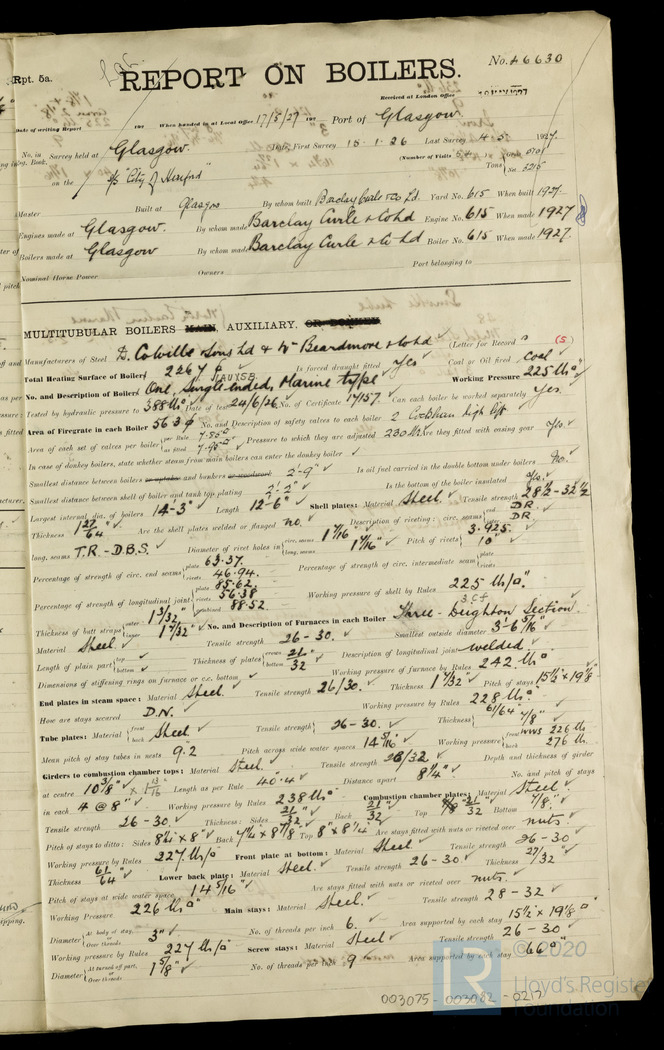 Rpt. 5a.
REPORT ON BOILERS.
No. 46630
Received at London Office
Date of writing Report 192 When handed in at Local Office 17/5/27 192 Port of Glasgow
No. in Survey held at Glasgow. Date, First Survey 15.1.26 Last Survey 1927
Reg. Book. (Number of Visits
on the S/S "City of Hereford" Tons
Master Built at Glasgow By whom built Barclay Curle & Co Ld. Yard No. 615 When built 1927
Engines made at Glasgow. By whom made Barclay Curle & Co Ld Engine No. 615 When made 1927
Boilers made at Glasgow By whom made Barclay Curle & Co Ld Boiler No. 615 When made 1927.
Nominal Horse Power Owners Port belonging to
MULTITUBULAR BOILERS MAIN, AUXILIARY, OR DONKEY.
Manufacturers of Steel D. Colville & Sons Ld & Wm Beardmore & Co Ld (Letter for Record (S)
Total Heating Surface of Boilers 2267 Is forced draught fitted Yes Coal or Oil fired coal
No. and Description of Boilers One, Single ended, Marine type Working Pressure 225 lbs
Tested by hydraulic pressure to 388 lbs Date of test 24/6/26 No. of Certificate 17157. Can each boiler be worked separately Yes.
Area of Firegrate in each Boiler 56.3 No. and Description of safety valves to each boiler 2 Cockburn high lift
Area of each set of valves per boiler per Rule 7.85 as fitted 7.95 Pressure to which they are adjusted 230 lbs Are they fitted with easing gear Yes.
In case of donkey boilers, state whether steam from main boilers can enter the donkey boiler
Smallest distance between boilers or uptakes and bunkers or woodwork 2'-9" Is oil fuel carried in the double bottom under boilers No.
Smallest distance between shell of boiler and tank top plating 2'-2" Is the bottom of the boiler insulated Yes.
Largest internal dia. of boilers 14-3" Length 12-6" Shell plates: Material Steel Tensile strength 28½-32½
Thickness 1 27/64" Are the shell plates welded or flanged no. Description of riveting: circ. seams end DR inter DR
long. seams T.R.-D.B.S. Diameter of rivet holes in circ. seams 1 7/16" long. seams 1 7/16" Pitch of rivets 3.925 10"
Percentage of strength of circ. end seams plate 63.37. rivets 46.94. Percentage of strength of circ. intermediate seam plate rivets
Percentage of strength of longitudinal joint plate 85.62. rivets 56.38 combined 88.52 Working pressure of shell by Rules 225 lbs/□".
Thickness of butt straps outer 1 3/32" inner 1 7/32" No. and Description of Furnaces in each Boiler 3 C.F. Three - Deighton Section
Material Steel Tensile strength 26-30. Smallest outside diameter 3'-6 5/16"
Length of plain part top bottom Thickness of plates crown bottom 21/32 Description of longitudinal joint welded.
Dimensions of stiffening rings on furnace or c.c. bottom Working pressure of furnace by Rules 242 lbs
End plates in steam space: Material Steel Tensile strength 26/30. Thickness 1 7/32" Pitch of stays 15½" x 19⅛"
How are stays secured D.N. Working pressure by Rules 228 lbs
Tube plates: Material front back Steel Tensile strength 26-30. Thickness 61/64" 7/8"
Mean pitch of stay tubes in nests 9.2 Pitch across wide water spaces 14 5/16" Working pressure front WWS 226 lbs back 276 lbs
Girders to combustion chamber tops: Material Steel Tensile strength 28/32 Depth and thickness of girder
at centre 10 3/8" x 13/16 Length as per Rule 40.4 Distance apart 8¼" No. and pitch of stays
in each 4 @ 8" Working pressure by Rules 238 lbs Combustion chamber plates: Material Steel
Tensile strength 26-30 Thickness: Sides 21/32 Back 21/32 Top 21/32 Bottom 7/8.
Pitch of stays to ditto: Sides 8¼" x 8" Back 7¼ x 8 7/8 Top 8" x 8¼ Are stays fitted with nuts or riveted over nuts.
Working pressure by Rules 227 lbs/□ Front plate at bottom: Material Steel Tensile strength 26-30
Thickness 61/64 Lower back plate: Material Steel Tensile strength 26-30 Thickness 27/32
Pitch of stays at wide water space 14 5/16" Are stays fitted with nuts or riveted over nuts.
Working Pressure 226 lbs Main stays: Material Steel. Tensile strength 28-32
Diameter At body of stay, Over threads 3" No. of threads per inch 6. Area supported by each stay 15½ x 19⅛
Working pressure by Rules 227 lbs/□ Screw stays: Material Steel Tensile strength 26-30
Diameter At turned off part, Over threads 1 5/8" No. of threads per inch 9 Area supported by each stay 66
003075-003082-0217
© 2020
Lloyd's Register
Foundation